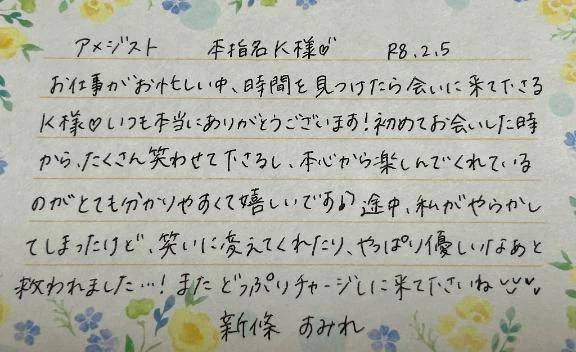 アメジスト 本指名K様♡ R8.2.5
お仕事がお忙しい中、時間を見つけたら会いに来て下さる
K様♡いつも本当にありがとうございます!初めてお会いした時
から、たくさん笑わせて下さるし、本心から楽しんでくれている
のがとても分かりやすくて嬉しいです♪途中、私がやらかし
てしまったけど、笑いに変えてくれたり、やっぱり優しいなあと
救われました…!またどっぷりチャージしに来て下さいね♡♡♡
新條 すみれ